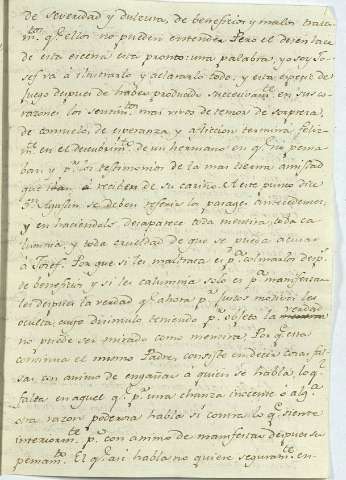 de severidad y dulzura, de beneficios y malos trata-
m.tos q.e ellos no pueden entender. Pero el desenlace
de esta escena está pronto: una palabra: yo soy Jo-
sef va á ilustrarlo y aclararlo todo; y esta especie de
fuego despues de haber producido succesivam.te en sus co-
razones los sentim.tos mas vivos de temor de sorpresa,
de consuelo, de esperanza, y afliccion termina feliz-
m.te en el descubrim.to de un hermano en q.n no pensa-
ban y p.r los testimonios de la mas tierna amistad
que iban á recibir de su cariño. A este punto dice
S.n Agustin se deben referir los parages antecedentes,
y en haciendolo desaparece toda mentira, toda ca-
lumnia, y toda crueldad de que se pueda acusar
á Josef. Porque si les maltrata es p.a colmarlos desp.s
de beneficios, y si les calumnia solo es p.a manifestar-
les despues la verdad q.e ahora p.r justos motivos les
oculta; cuyo disimulo teniendo p.r objeto la verdad
no puede ser mirado como mentira. Porq.e esta
continua el mismo Padre, consiste en decir cosa fal-
sa con animo de engañar á quien se habla; lo q.e
falta en aquel q.e p.r una chanza inocente ó alg.a
otra razon poderosa habla si contra lo q.e siente
interiorm.te p.o con animo de manifestar despues su
pensam.to. El q.e asi habla no quiere seguram.te en-